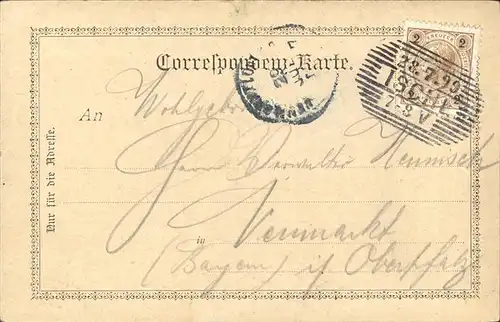 2 KREUZER 2
Correspondenz-Karte.
28.7.90
ISCHL
7-8 V
An
Wohlgeb
Herrn Verwalter
in Neumarkt
(Bayern) i/ Oberpfalz
Nur für die Adresse.